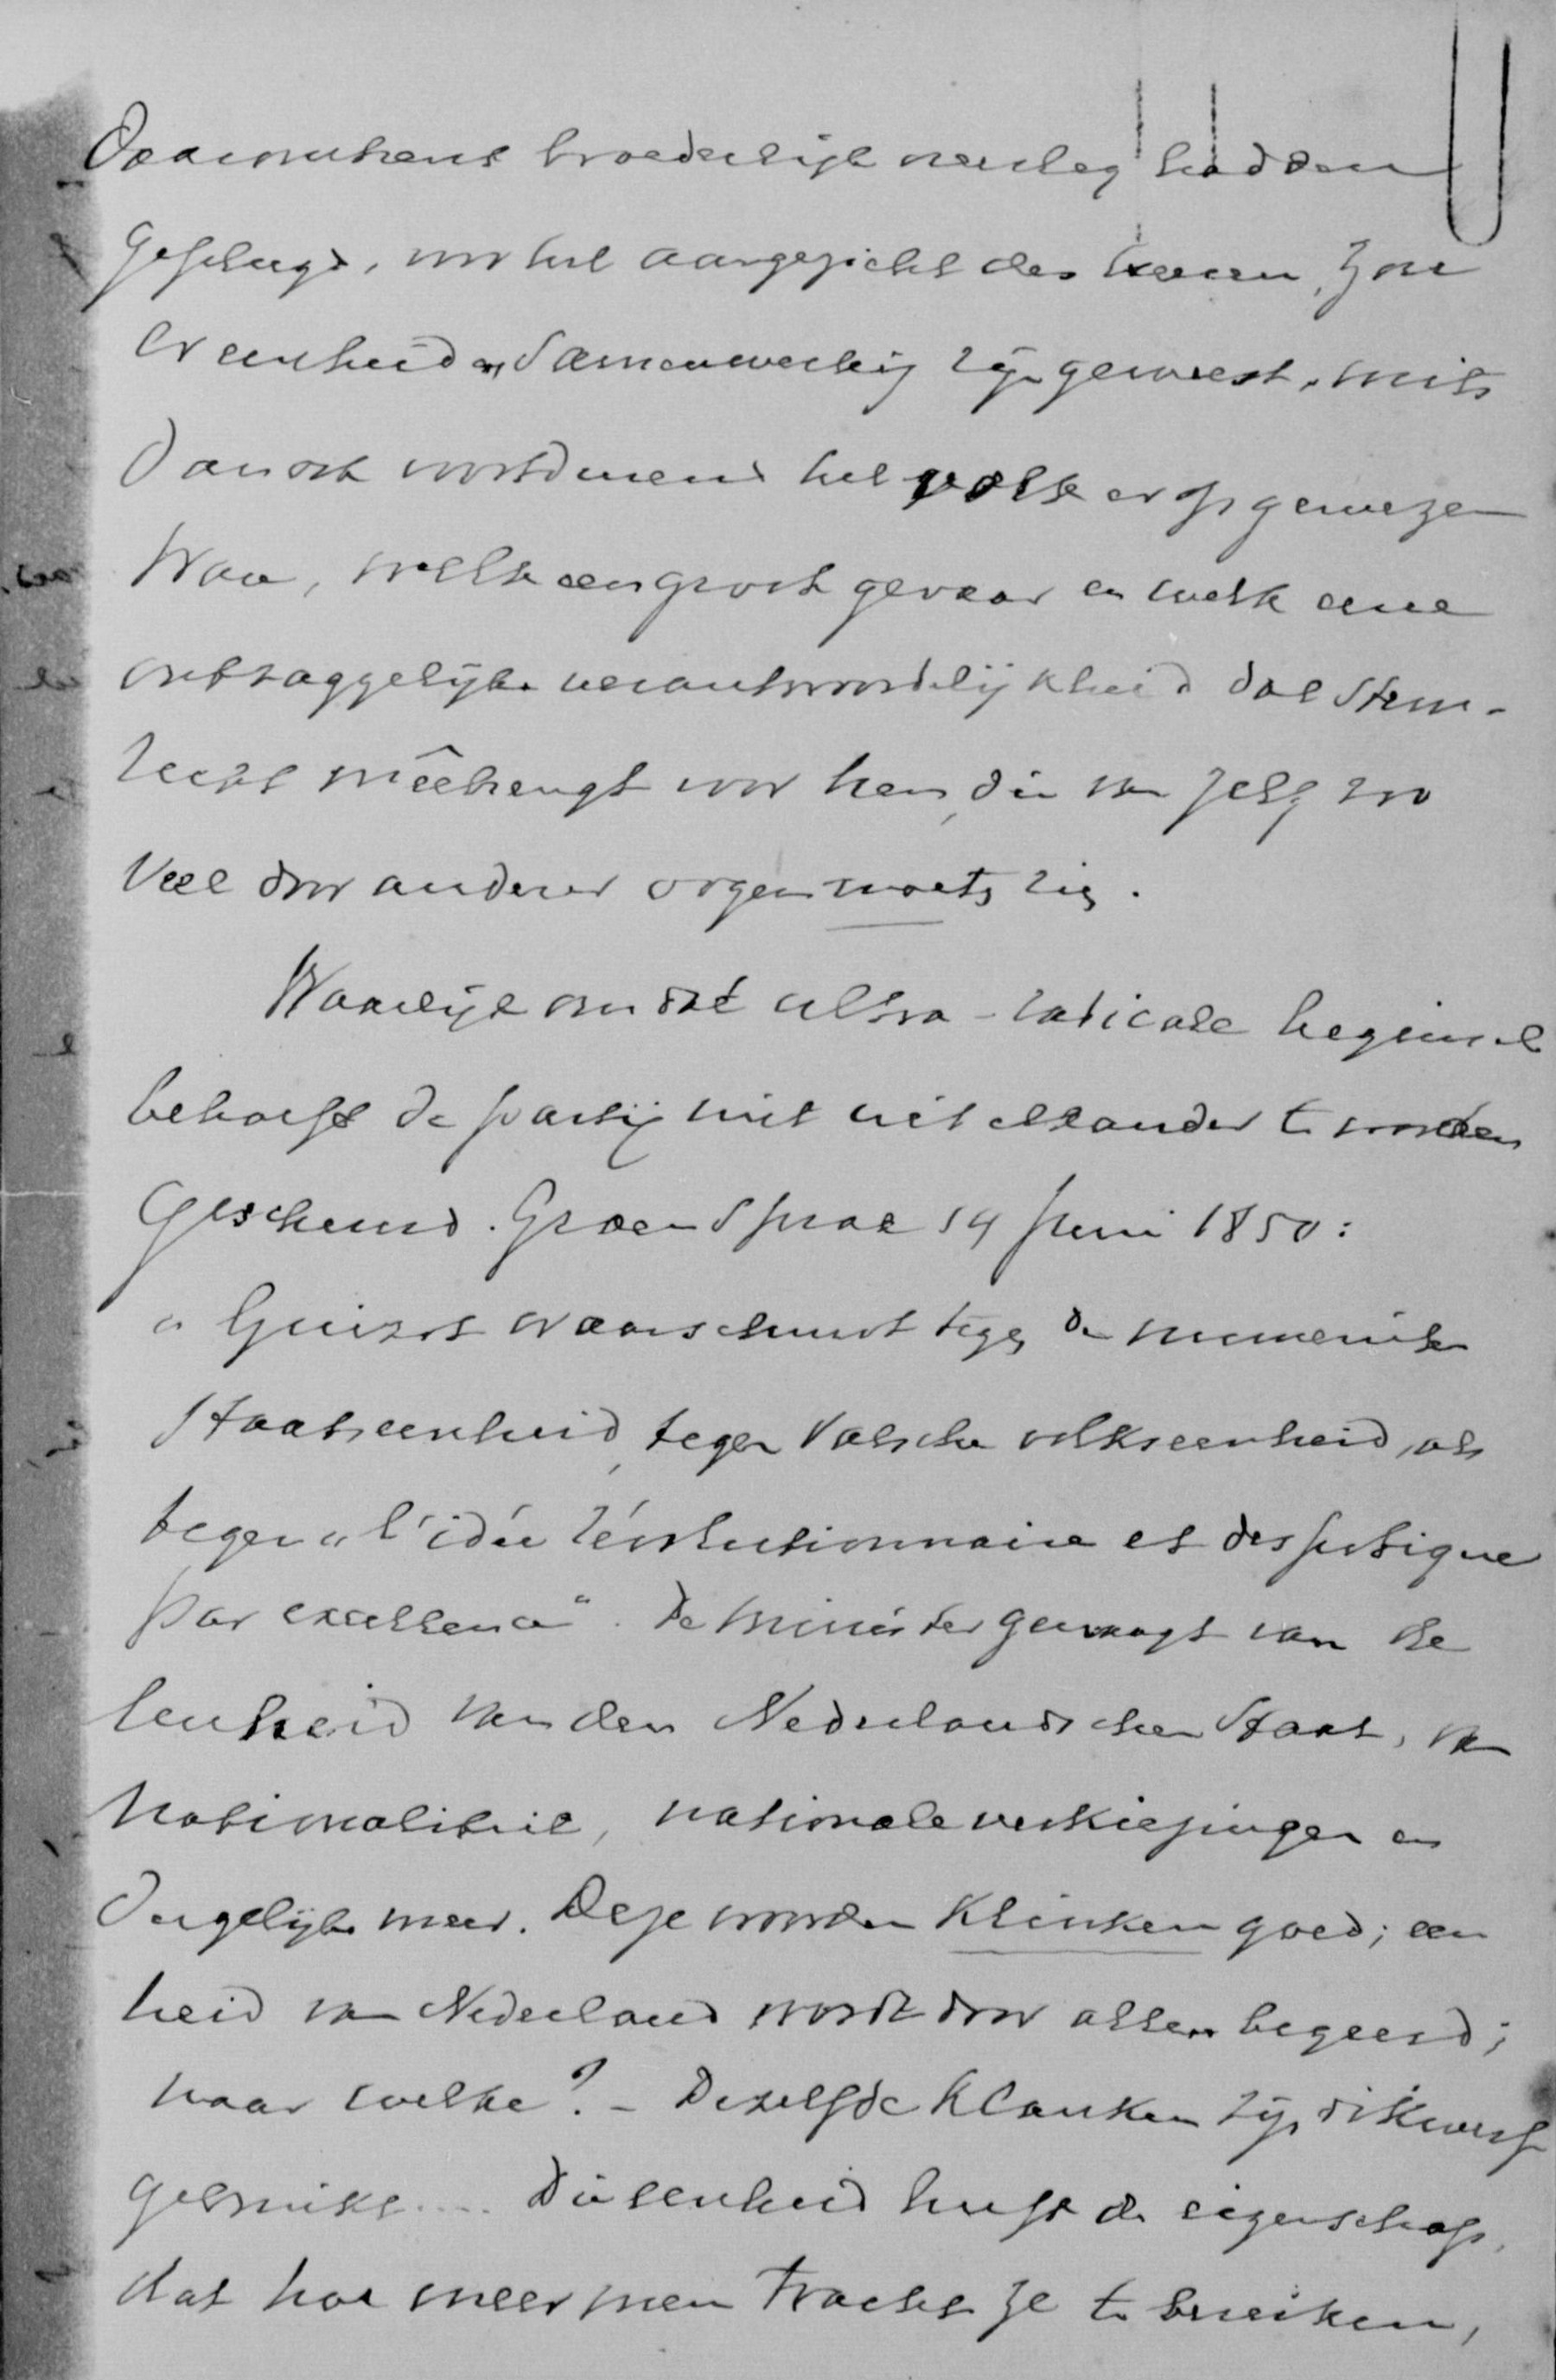 Daaromtrent broederlijk overleg hadden
gepleegd, voor het aangezicht des Heeren, zou
er eenheid en samenwerking zijn geweest, mits
dan ook voortdurend het volk er op gewezen
waar, welk een groot gevaar en welk eene
ontzaggelijke verantwoordelijkheid dat stem-
recht meêbrengt voor hen, die van zelf zoo
veel door anderer oogen moeten zien.
Waarlijk om dat ultra-radicale beginsel
behoeft de partij niet uit elkander te worden
gescheurd. Groen sprak 14 Juni 1850:
„Guizot waarschuwt tegen de numerieke
Staatseenheid, tegen valsche volkseenheid, als
tegen „l'idée révolutionnaire et despotique
par excellence". De minister gewaagt van de
eenheid van den Nederlandschen Staat, van
nationaliteit, nationale verkiezingen en
dergelijke meer. Deze woorden klinken goed; een
heid van Nederland wordt door allen begeerd;
maar welke? - Dezelfde klanken zijn dikwerf
gebruikt .... Die eenheid heeft de eigenschap,
dat hoe meer men tracht ze te bereiken,